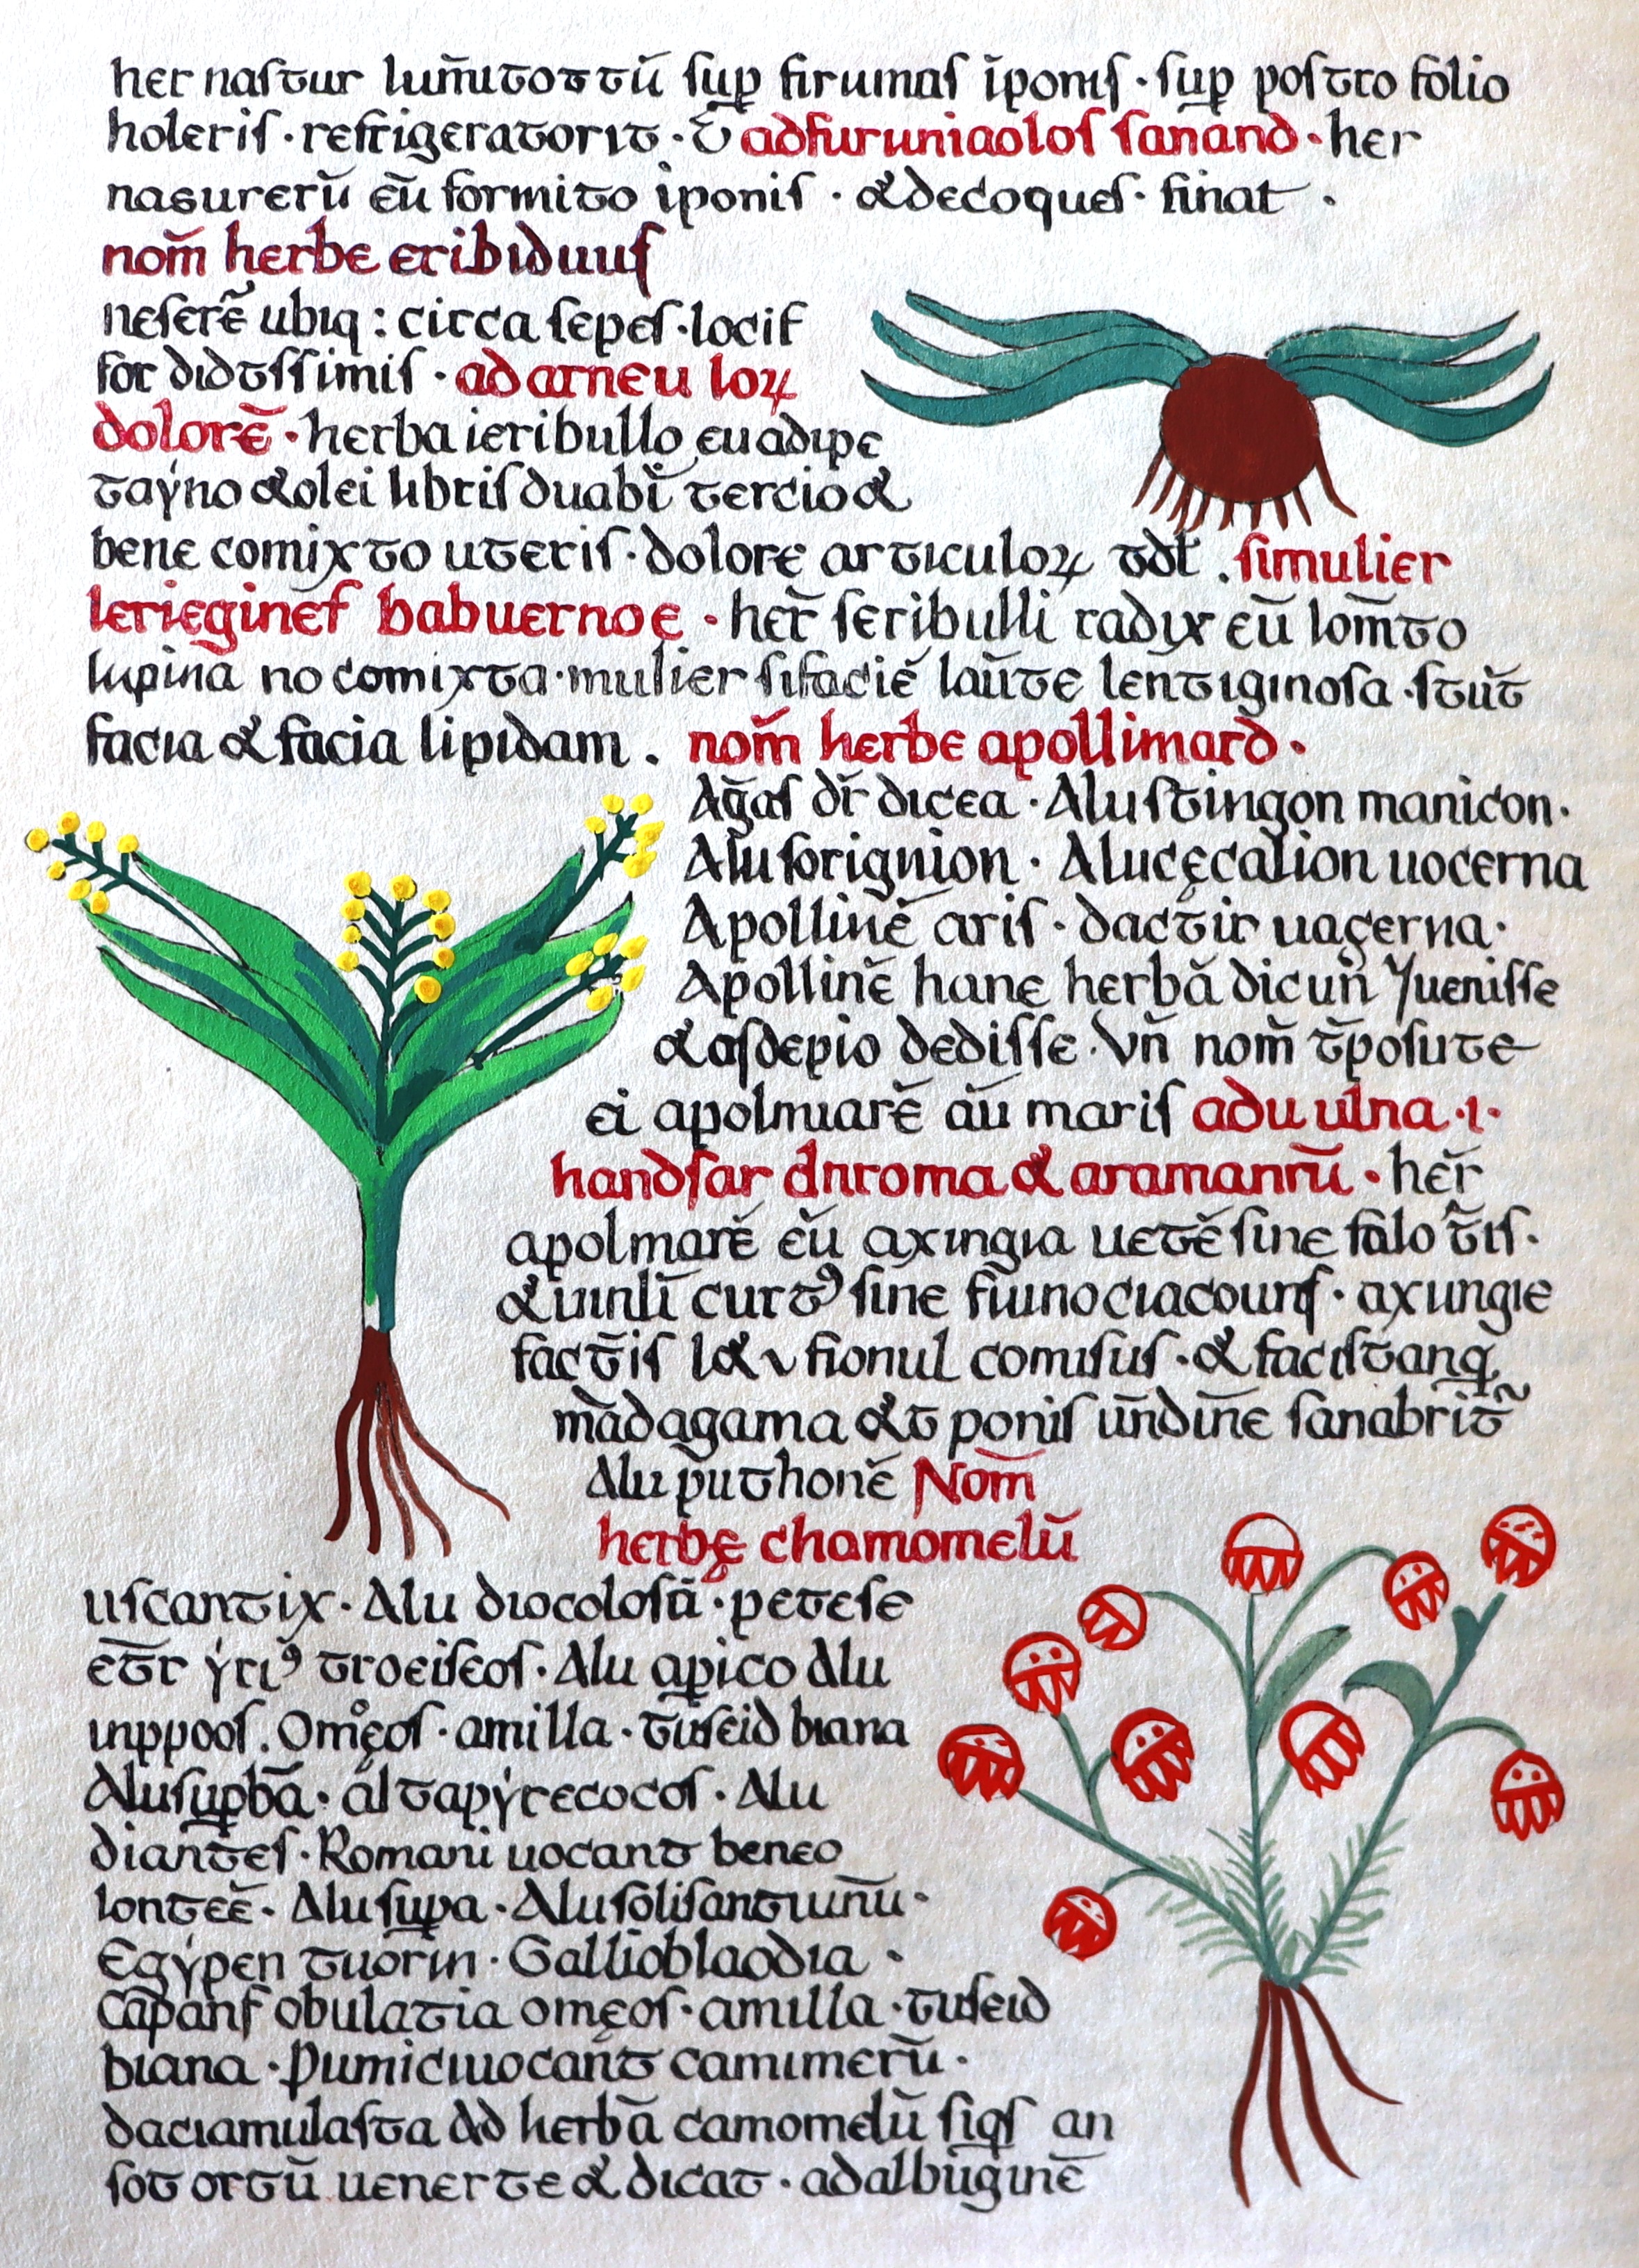 her nasтur lum̄itottū sup̲ firumas īponis · sup̲ postro folio
holeris · refrigeratorit · & adfuruniaolos sanand · her
nasurerū eū formito iponis · &decoques · finat ·
nom̄ herbe eribiduus
neserē ubiq : circa sepes · locif
for didissimis · ad arneu loꝝ
dolorē · herba ieribullo eu adipe
tayno &olei libris duabī tercio&
bene comixto uteris · dolore articuloꝝ tdt . simulier
lerieginef babuernoe · her̄ seribulli radix eū lom̄to
lupina no comixta · mulier sifaciē laūte lentiginosa · stūt
facia & facia lipidam . nom̄ herbe apollimard ·
Aḡas dr̄ dicea · Alu stingon manicon ·
Alu forignion · Alucęcalion uocerna
Apollinē aris · dactir uaçerna ·
Apollinē hane herbā dicun̄ Yuenisse
&asdepio dedisse · Vn̄ nom̄ t̄posute
ei apolmiarē aū maris aduulna · ı ·
handsar dnroma & aramanrū · her̄
apolmarē eū axıngıa uetē sine falo t̄ıs ·
&uınlī curt⁹ sine fiuıno ciacouns · axungıe
fact̄is l&v fionul comisus · & facistanq̄
mādagama &t ponis un̄din̄e sanabrit̄
Alu puthonē Nom̄
herbę chamomelū
uscantix · Alu diocolosā · petese
et̄r yri⁹ troeiseos · Alu apico Alu
uıppoos . Omęos · amilla · tūseid biana
Alusup̲bā · āltapyrecocos · Alu
diantes · Romani uocant beneo
lonteē · Alu sup̲a · Alusolisantuınū ·
Egypen tuorin · Gallioblaodia ·
Cāpanf obulatia omęos · amilla · tuseid
biana · Pumiciuocan̄t camımerū ·
daciamulasta Ad herbā camomelū siqs an
sot ortū uenerte & dicat · adalbuginē